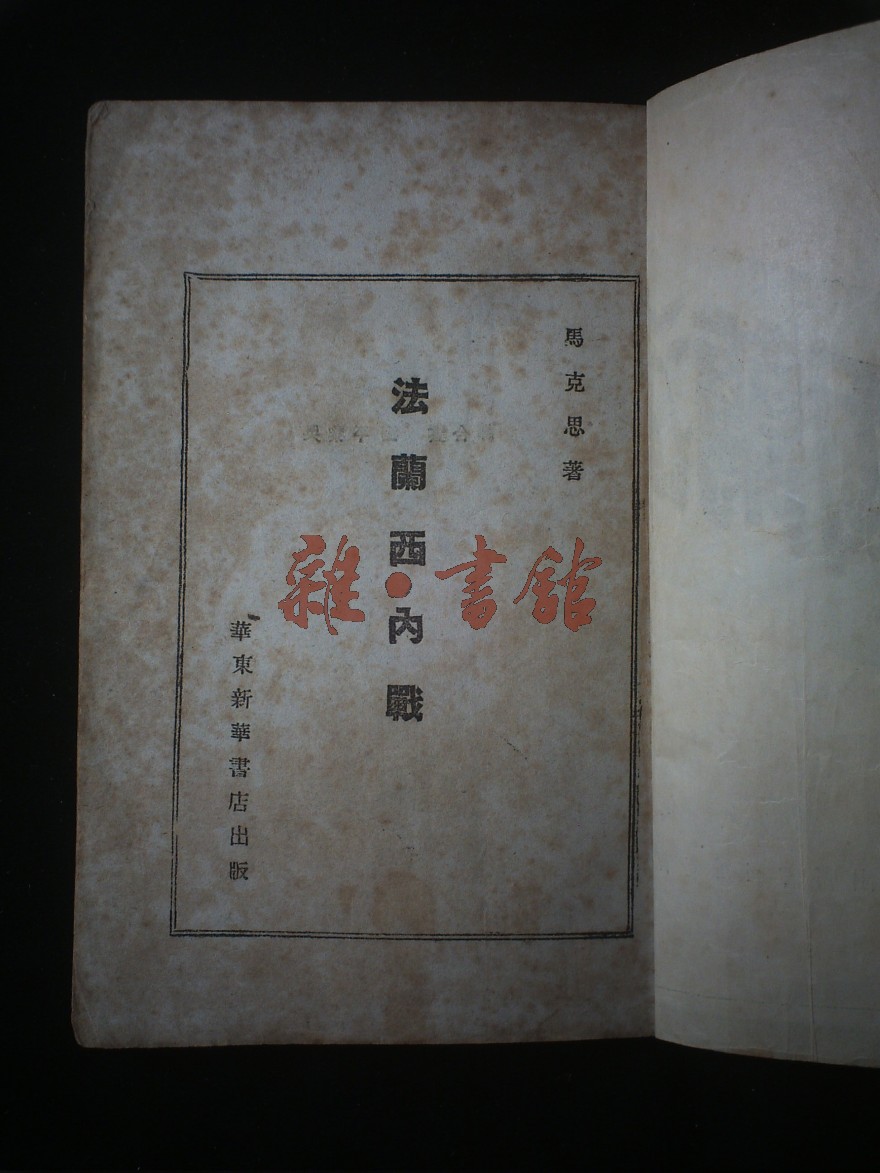 馬克思著
法蘭西內戰
華東新華書店出版
雜·書館